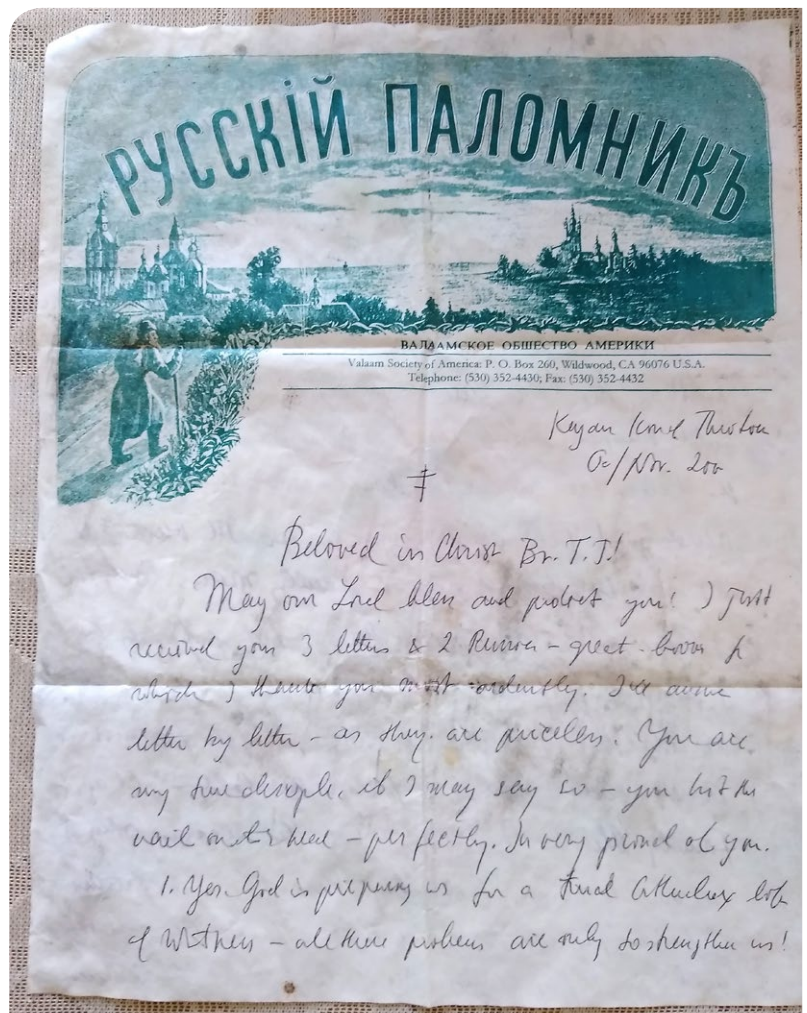 РУССКІЙ ПАЛОМНИКЪ
ВАЛААМСКОЕ ОБЩЕСТВО АМЕРИКИ
Valaam Society of America: P. O. Box 260, Wildwood, CA 96076 U.S.A.
Telephone: (530) 352-4430; Fax: (530) 352-4432
Nov. 200
Beloved in Christ Br. T.J!
May our Lord bless and protect you! I just
received your 3 letters & 2 great
which I thank you most ardently. I'll
letter by letter – as they are priceless. You are
my true disciple, if I may say so – you hit the
nail on the head – perfectly. I'm very proud of you.
1. Yes God is preparing us for a final
of Witness – all these problems are only to strengthen us!